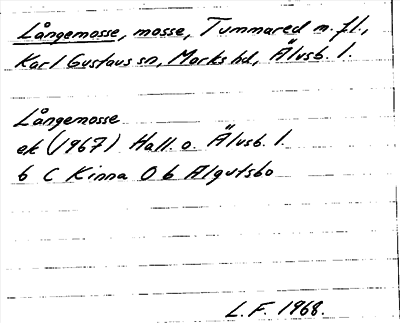 Långemosse, mosse, Tummared m. fl.,
Karl Gustavs sn, Marks hd, Älvsb. l.
Långemosse
ek (1967) Hall. o. Älvsb. l.
6 C Kinna 0 b Algutsbo
L. F. 1968.